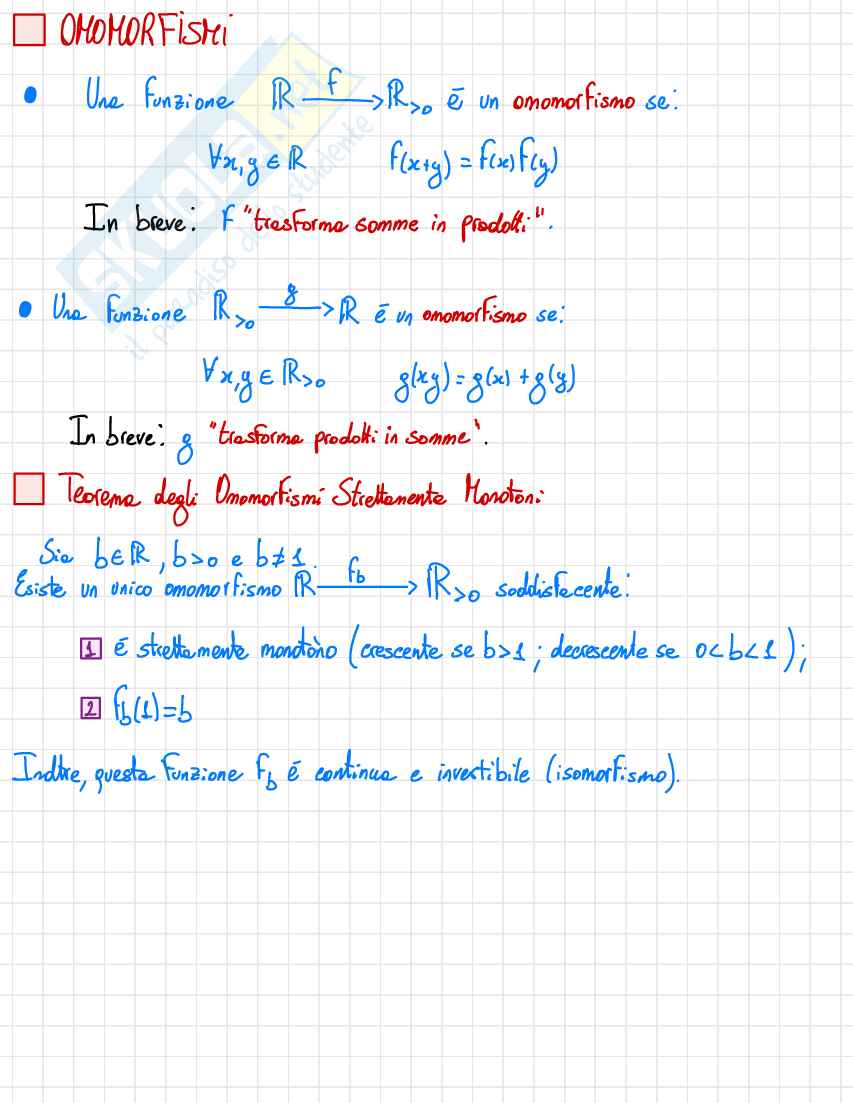 OMOMORFISMI
Una funzione ℝ —f→ ℝ>0 é un omomorfismo se:
∀x,y ∈ ℝ f(x+y) = f(x) f(y)
In breve: f "trasforma somme in prodotti".
Una funzione ℝ>0 —g→ ℝ é un omomorfismo se:
∀x,y ∈ ℝ>0 g(xy) = g(x) + g(y)
In breve: g "trasforma prodotti in somme".
Teorema degli Omomorfismi Strettamente Monotoni
Sia b∈ℝ, b>0 e b≠1.
Esiste un unico omomorfismo ℝ —fb→ ℝ>0 soddisfacente:
1 é strettamente monotòno (crescente se b>1; decrescente se 0<b<1);
2 fb(1)=b
Inoltre, questa funzione fb é continua e invertibile (isomorfismo).
SKUOLA.net
il paradiso dello studente